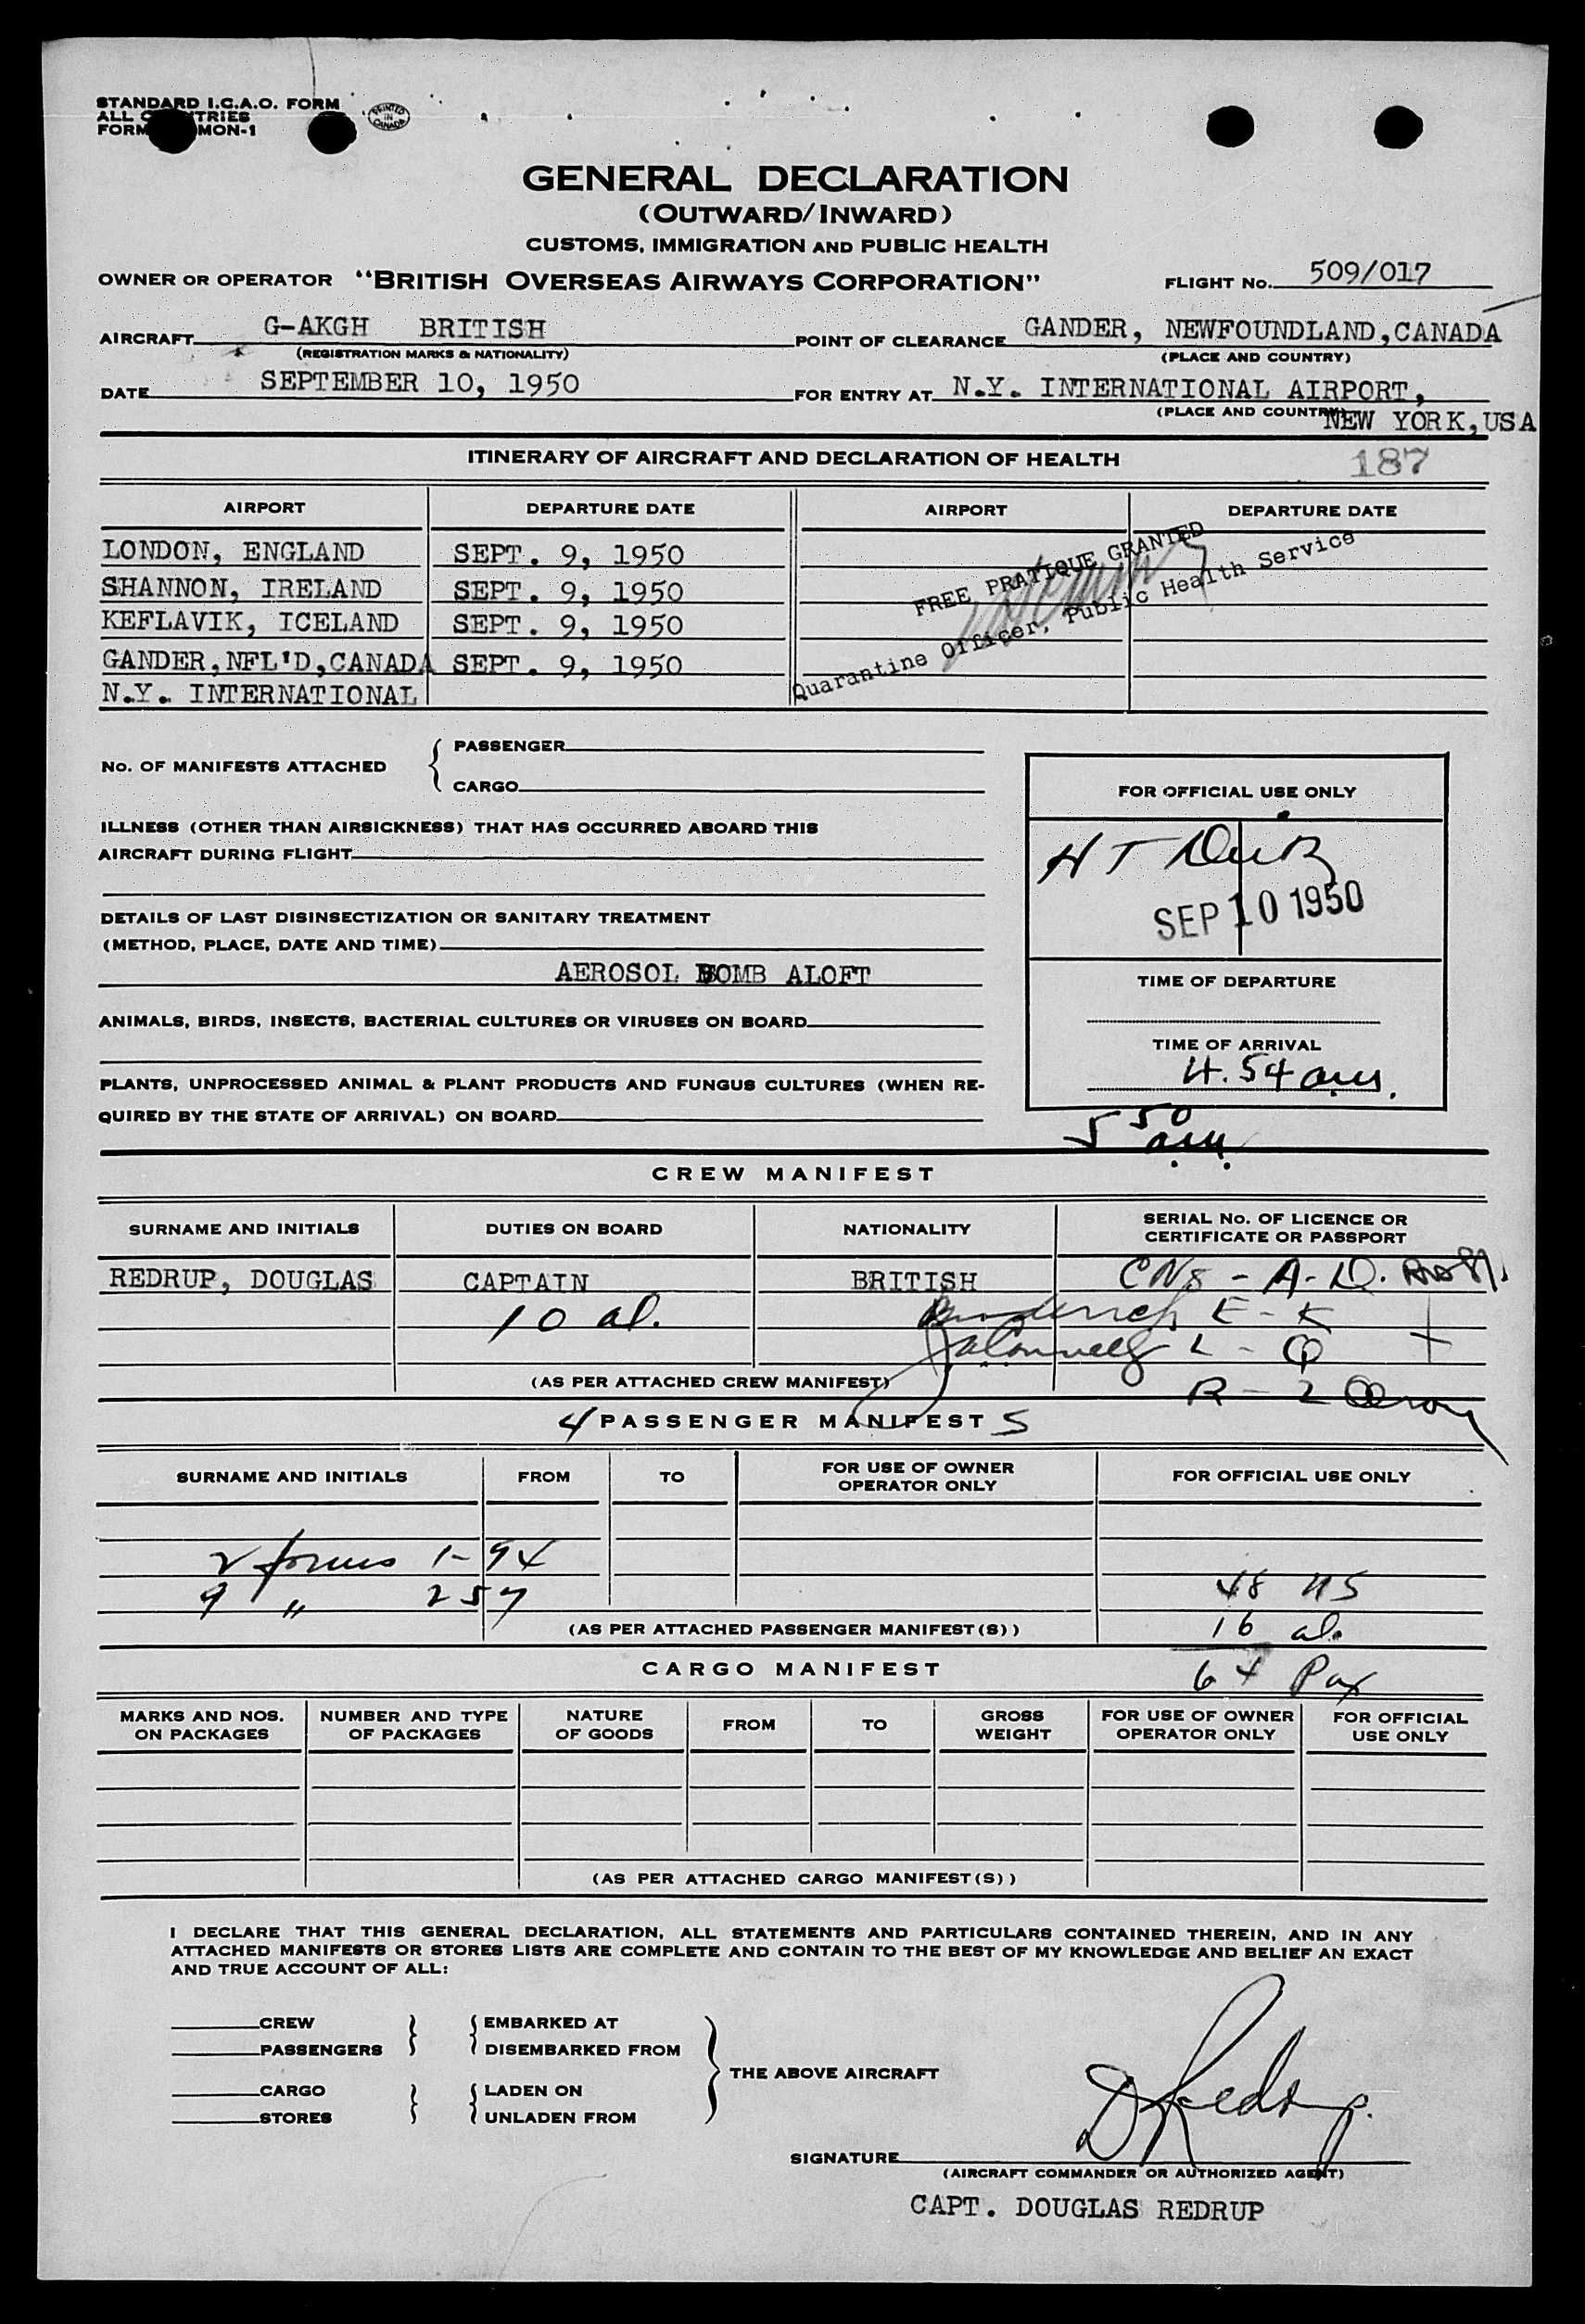 STANDARD I.C.A.O. FORM
ALL
FORM MON-1
PRINTED IN CANADA
GENERAL DECLARATION
(OUTWARD/INWARD)
CUSTOMS, IMMIGRATION AND PUBLIC HEALTH
OWNER OR OPERATOR "BRITISH OVERSEAS AIRWAYS CORPORATION" FLIGHT No. 509/017
AIRCRAFT G-AKGH BRITISH POINT OF CLEARANCE GANDER, NEWFOUNDLAND,CANADA
(REGISTRATION MARKS & NATIONALITY) (PLACE AND COUNTRY)
DATE SEPTEMBER 10, 1950 FOR ENTRY AT N.Y. INTERNATIONAL AIRPORT,
(PLACE AND COUNTRY) NEW YORK,USA
ITINERARY OF AIRCRAFT AND DECLARATION OF HEALTH 187
AIRPORT DEPARTURE DATE AIRPORT DEPARTURE DATE
LONDON, ENGLAND SEPT. 9, 1950
SHANNON, IRELAND SEPT. 9, 1950
KEFLAVIK, ICELAND SEPT. 9, 1950
GANDER,NFL'D,CANADA SEPT. 9, 1950
N.Y. INTERNATIONAL
FREE PRATIQUE GRANTED
Quarantine Officer, Public Health Service
No. OF MANIFESTS ATTACHED
PASSENGER
CARGO
ILLNESS (OTHER THAN AIRSICKNESS) THAT HAS OCCURRED ABOARD THIS
AIRCRAFT DURING FLIGHT
DETAILS OF LAST DISINSECTIZATION OR SANITARY TREATMENT
(METHOD, PLACE, DATE AND TIME)
AEROSOL BOMB ALOFT
ANIMALS, BIRDS, INSECTS, BACTERIAL CULTURES OR VIRUSES ON BOARD
PLANTS, UNPROCESSED ANIMAL & PLANT PRODUCTS AND FUNGUS CULTURES (WHEN RE-
QUIRED BY THE STATE OF ARRIVAL) ON BOARD
FOR OFFICIAL USE ONLY
H T
SEP 10 1950
TIME OF DEPARTURE
TIME OF ARRIVAL
4.54 am.
5 50
am
CREW MANIFEST
SURNAME AND INITIALS DUTIES ON BOARD NATIONALITY SERIAL No. OF LICENCE OR
CERTIFICATE OR PASSPORT
REDRUP, DOUGLAS CAPTAIN BRITISH A-D.
10 al. E-K
L-Q
(AS PER ATTACHED CREW MANIFEST) R-Z
4 PASSENGER MANIFEST S
SURNAME AND INITIALS FROM TO FOR USE OF OWNER
OPERATOR ONLY FOR OFFICIAL USE ONLY
2 forms 1-94
9 " 257 48 NS
(AS PER ATTACHED PASSENGER MANIFEST(S)) 16 al.
CARGO MANIFEST 64 Pax
MARKS AND NOS.
ON PACKAGES NUMBER AND TYPE
OF PACKAGES NATURE
OF GOODS FROM TO GROSS
WEIGHT FOR USE OF OWNER
OPERATOR ONLY FOR OFFICIAL
USE ONLY
(AS PER ATTACHED CARGO MANIFEST(S))
I DECLARE THAT THIS GENERAL DECLARATION, ALL STATEMENTS AND PARTICULARS CONTAINED THEREIN, AND IN ANY
ATTACHED MANIFESTS OR STORES LISTS ARE COMPLETE AND CONTAIN TO THE BEST OF MY KNOWLEDGE AND BELIEF AN EXACT
AND TRUE ACCOUNT OF ALL:
CREW EMBARKED AT
PASSENGERS DISEMBARKED FROM
THE ABOVE AIRCRAFT
CARGO LADEN ON
STORES UNLADEN FROM
D Redrup.
SIGNATURE
(AIRCRAFT COMMANDER OR AUTHORIZED AGENT)
CAPT. DOUGLAS REDRUP